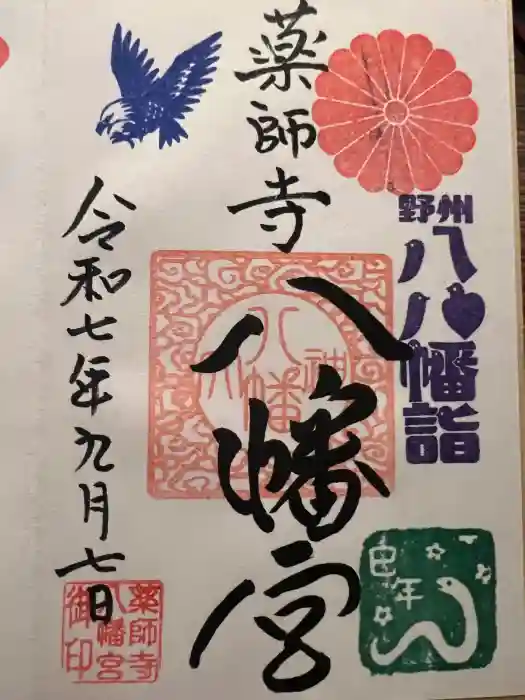 野州
八八幡詣
巳年
薬師寺
八幡宮
八幡
令和七年九月七日
薬師寺
八幡宮
御印